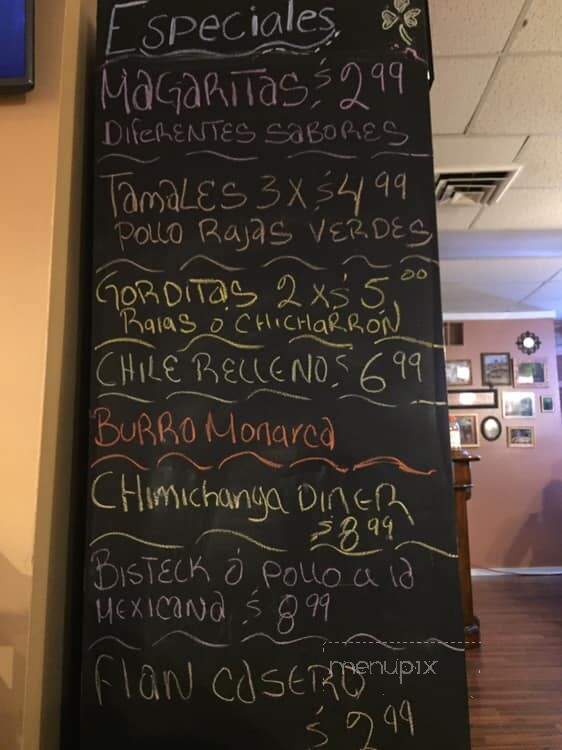 Especiales
MaGaRiTas $ 2 99
DiFERENTES SABORES
TamaLES 3 X $4 99
POLLO RajaS VERDES
GORDiTaS 2 x $ 5.00
RaJas O CHiCHARRÓN
CHiLE RELLENO $ 6 99
BURRO Monarca
CHimichanga DinER
$8 99
BiSTECK ó pollo a la
MEXicana $ 8 99
Flan CaSERO
$ 2 99
menupix